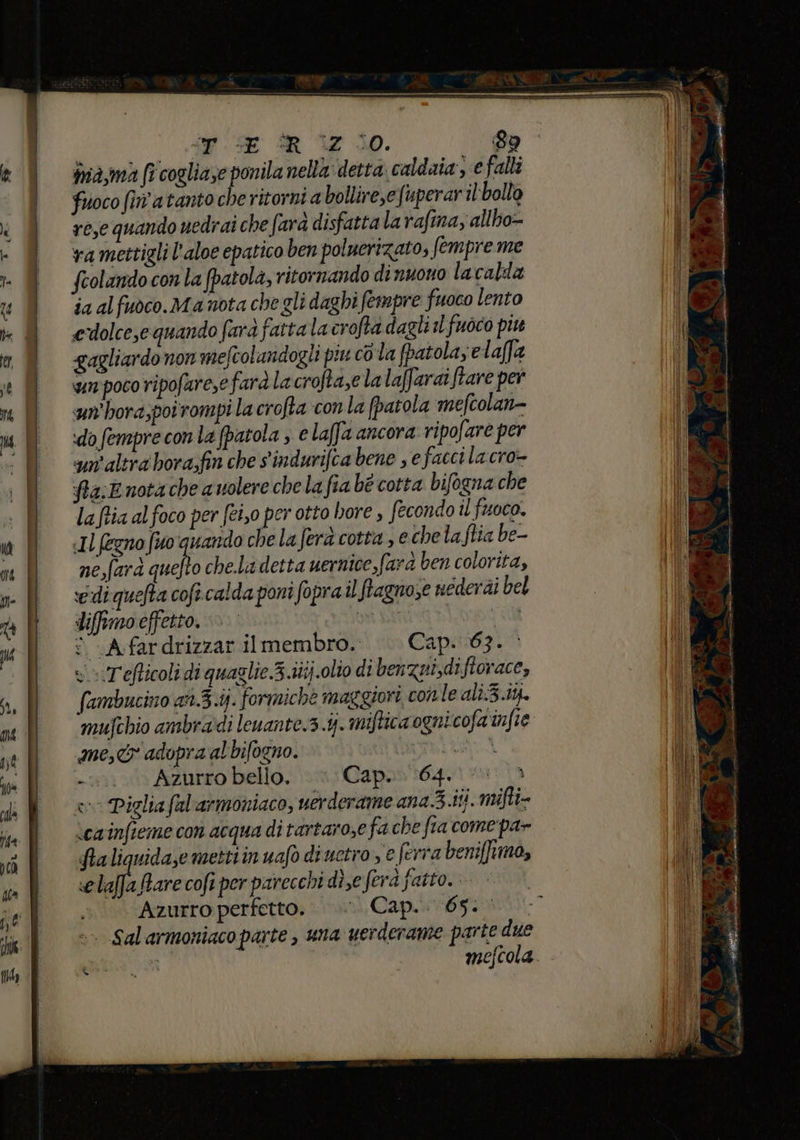 TERZO. 89
ma,ma ſi coglia,e ponila nella detta caldaia, e falli
fuoco ſin'a tanto che ritorni a bollire,e ſuperar il bollo
re,e quando uedrai che ſarà disfatta la raſina, allho-
ra mettigli l'aloe epatico ben poluerizato, ſempre me
ſcolando con la ſpatola, ritornando di nuouo la calda
ia al fuoco. Ma nota che gli daghi ſempre fuoco lento
e dolce,e quando ſarà fatta la croſta dagli il fuoco piu
gagliardo non meſcolandogli piu cō la ſpatola, e laſſa
un poco ripoſare,e farà la croſta,e la laſſarai ſtare per
un'hora,poi rompi la croſta con la ſpatola meſcolan-
do ſempre con la ſpatola, e laſſa ancora ripoſare per
un'altra hora,fin che s'induriſca bene, e facci la cro-
ſta. E nota che a uolere che la ſia bē cotta biſogna che
la ſtia al foco per ſei,o per otto hore, ſecondo il fuoco.
Il ſegno ſuo quando che la ſerà cotta, e che la ſtia be-
ne,ſarà queſto che la detta uernice,ſarà ben colorita,
e di queſta coſi calda poni ſopra il ſtagno,e uederai bel
diſſimo effetto.
A far drizzar il membro. Cap. 63.
Teſticoli di quaglie.3.iiij.olio di benzui,di ſtorace,
ſambucino an.3.ij. formiche maggiori con le ali.3.iij.
muſchio ambra di leuante.3.ij. miſtica ogni coſa inſie
me,& adopra al biſogno.
Azurro bello. Cap. 64.
Piglia ſal armoniaco, uerderame ana.3.iij. miſti-
ca inſieme con acqua di tartaro,e fa che ſia come pa-
ſta liquida,e metti in uaſo di uetro, e ſerra beniſſimo,
e laſſa ſtare coſi per parecchi dì,e ſerà fatto.
Azurro perfetto. Cap. 65.
Sal armoniaco parte, una uerderame parte due
meſcola